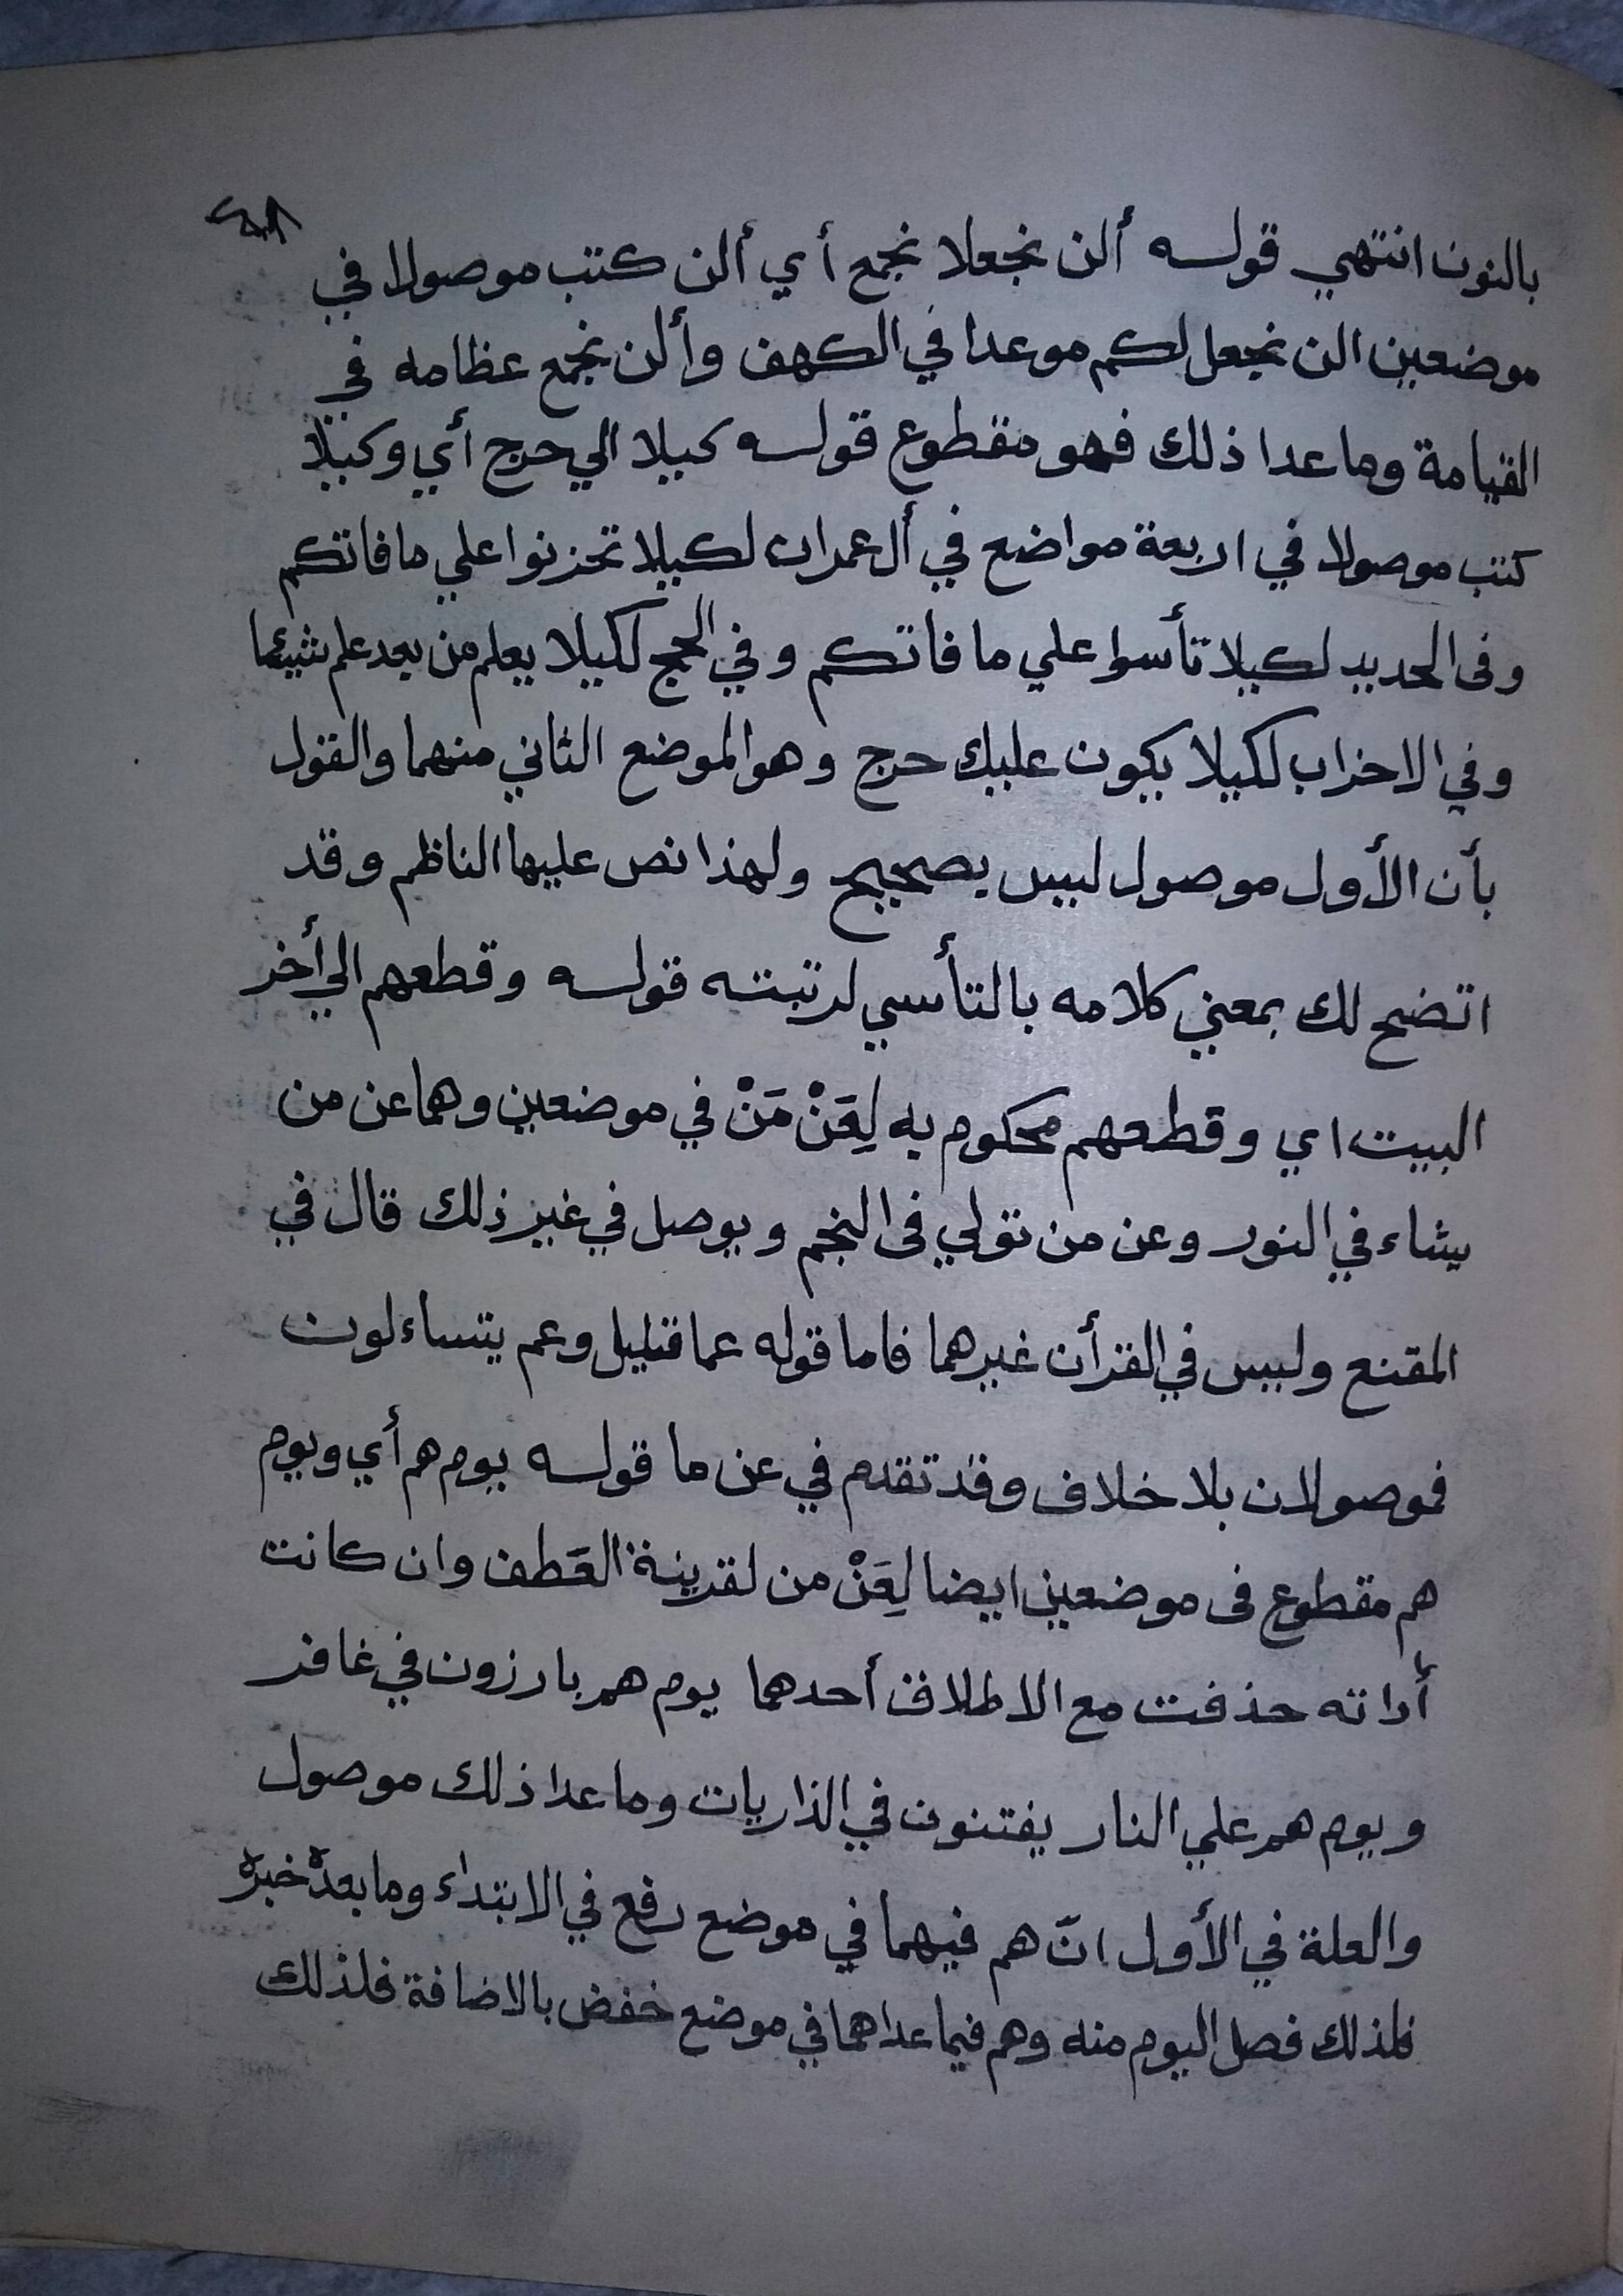 بالنون انتهي قوله ألن نجعلا نجمع أي ألن كتب موصولا في
موضعين الن نجعل لكم موعدا في الكهف وألن نجمع عظامه في
القيامة وما عدا ذلك فهو مقطوع قوله كيلا الي حرج أي وكيلا
كتب موصولا في اربعة مواضع في أل عمران لكيلا تحزنوا علي ما فاتكم
وفى الحديد لكيلا تأسوا علي ما فاتكم وفي الحج لكيلا يعلم من بعد علم شيئا
وفي الاحزاب لكيلا يكون عليك حرج وهو الموضع الثاني منهما والقول
بأن الأول موصول ليس بصحيح ولهذا نص عليها الناظم وقد
اتضح لك بمعني كلامه بالتأسي لرتبته قوله وقطعهم الي أخر
البيت اي وقطعهم محكوم به لِعَنْ مَنْ في موضعين وهما عن من
يشاء في النور وعن من تولي فى النجم ويوصل في غير ذلك قال في
المقنع وليس في القرأن غيرهما فاما قوله عما قليل وعم يتساءلون
فموصولان بلا خلاف وقد تقدم في عن ما قوله يوم هم أي ويوم
هم مقطوع فى موضعين ايضا لِعَنْ من لقرينة العَطف وان كانت
أداته حذفت مع الاطلاق أحدهما يوم هم بارزون في غافر
ويوم هم علي النار يفتنون في الذاريات وما عدا ذلك موصول
والعلة في الأول انّ هم فيهما في موضع رفع في الابتداء وما بعده خبره
فلذلك فصل اليوم منه وهم فيما عداهما في موضع خفض بالاضافة فلذلك